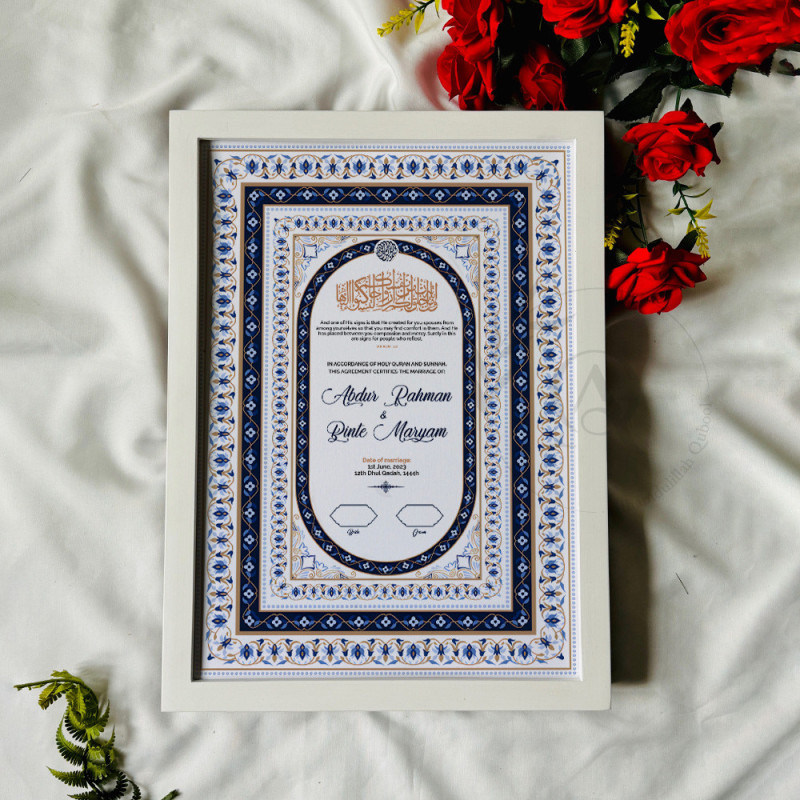 And one of His signs is that He created for you spouses from
among yourselves so that you may find comfort in them. And He
has placed between you compassion and mercy. Surely in this
are signs for people who reflect.
IN ACCORDANCE OF HOLY QURAN AND SUNNAH,
THIS AGREEMENT CERTIFIES THE MARRIAGE OF:
Abdur Rahman
&
Binte Maryam
Date of marriage:
1st June, 2023
12th Dhul Qadah, 1444h
Bride
Groom